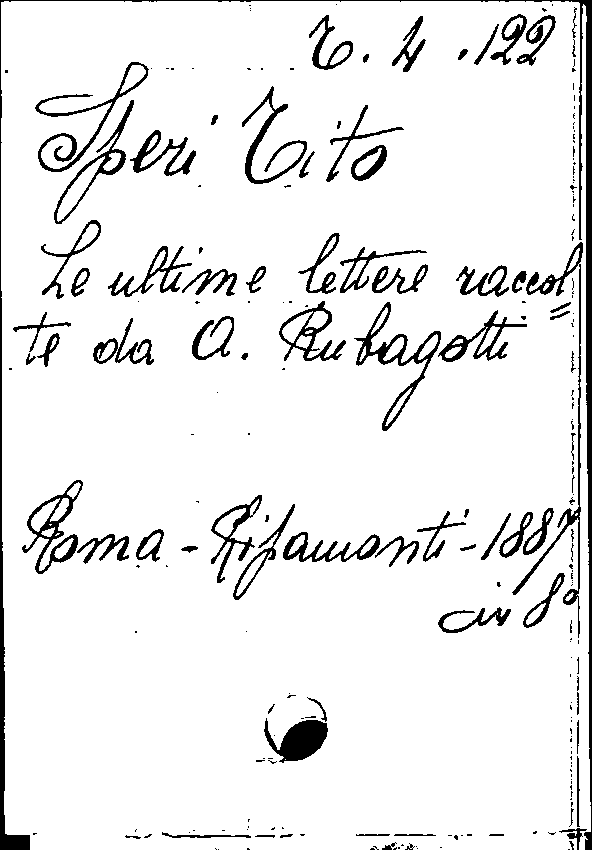 T. 4 .122
Speri Tito
Le ultime lettere raccol=
te da A. Rubagotti
Roma - Ripamonti - 1887
in 8°